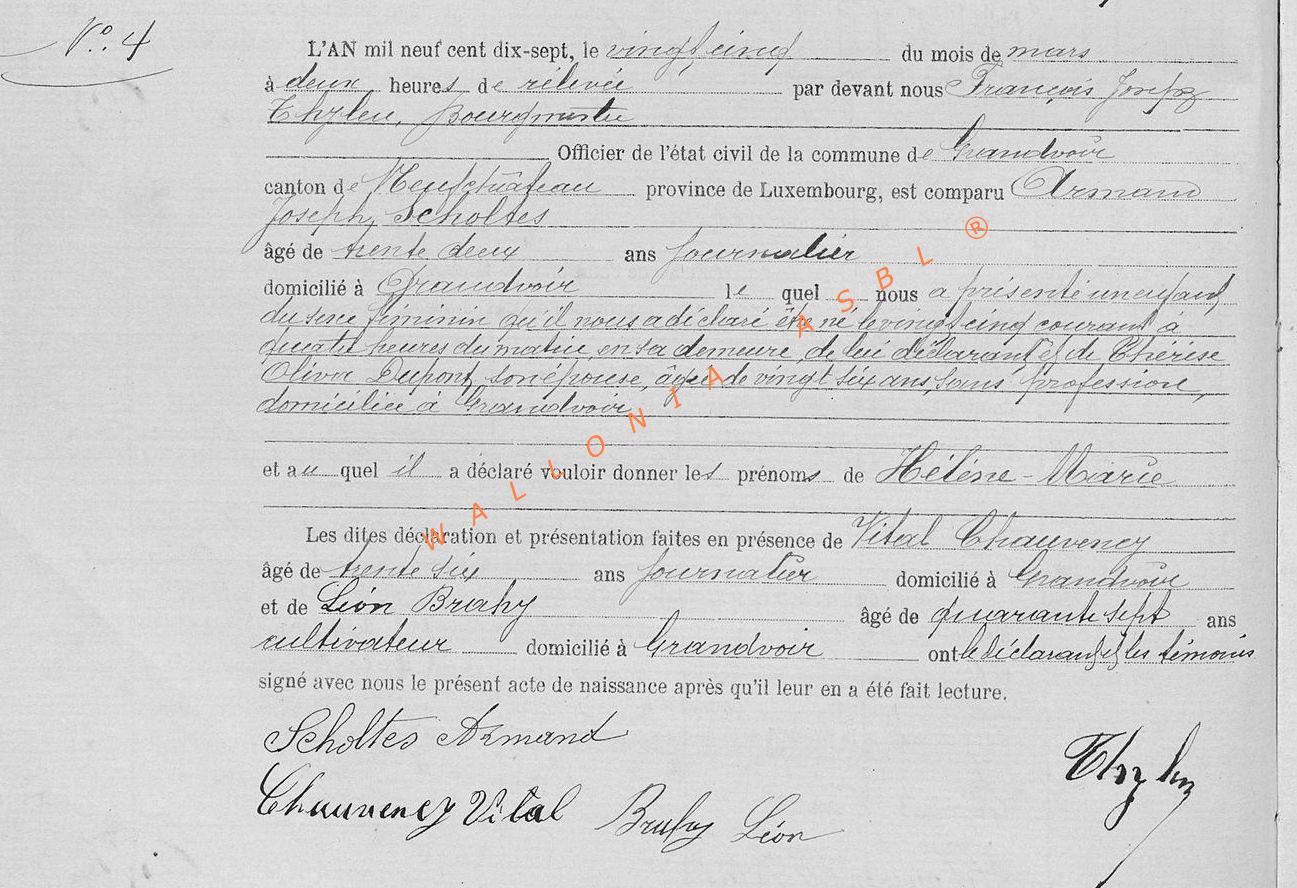 N°. 4
L'AN mil neuf cent dix-sept, le vingt cinq du mois de mars
à deux heures de rélevée par devant nous François Joseph
Thylen, Bourgmestre
Officier de l'état civil de la commune de Grandvoir
canton de Neufchâteau province de Luxembourg, est comparu Armand
Joseph, Scholtes
âgé de trente deux ans journalier
domicilié à Grandvoir le quel nous a présenté un enfant
du sexe féminin qu'il nous a déclaré être né le vingt cinq courant à
quatre heures du matin, en sa demeure, de lui déclarant et de Thérèse
Oliva Dupont, son épouse, âgée de vingt six ans, sans profession,
domiciliée à Grandvoir
et au quel il a déclaré vouloir donner les prénoms de Hélène-Marie
Les dites déclaration et présentation faites en présence de Vital Chauvency
âgé de trente six ans journalier domicilié à Grandvoir
et de Léon Brahy âgé de quarante sept ans
cultivateur domicilié à Grandvoir ont le déclarant et les témoins
signé avec nous le présent acte de naissance après qu'il leur en a été fait lecture.
Scholtes Armand
Thylen
Chauvency Vital Brahy Léon
WALLONIA ASBL ®